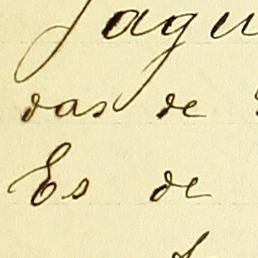 Jagu
das de
Es de